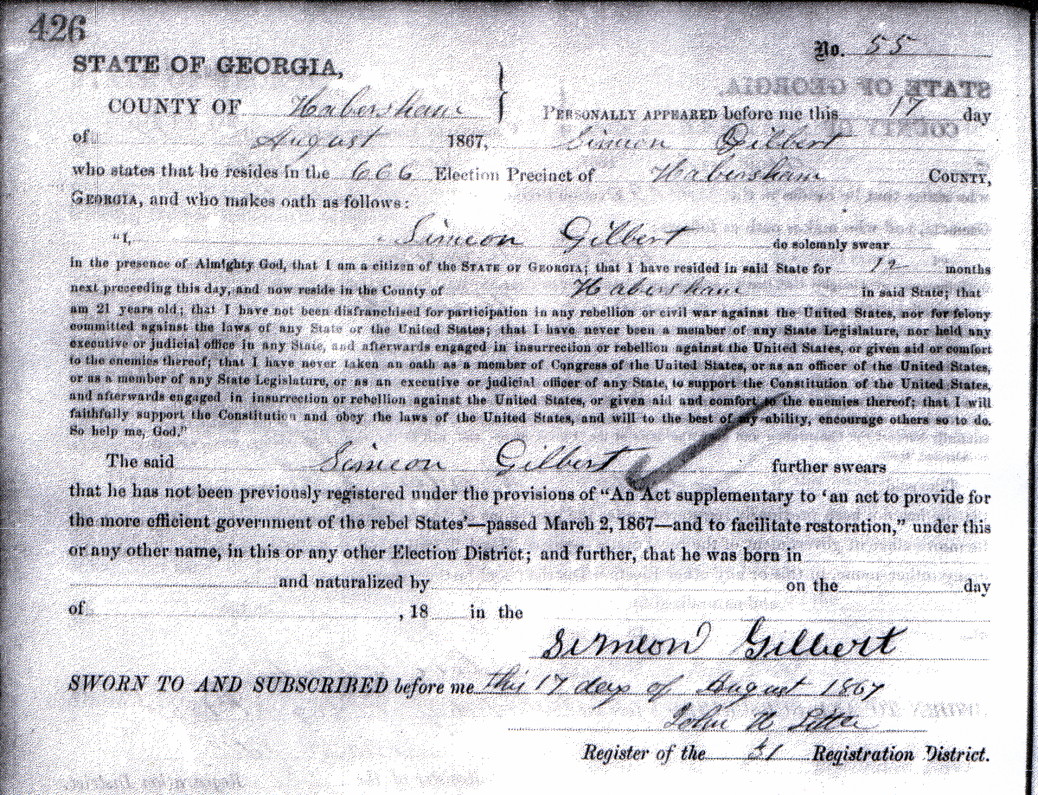 426
No. 55
STATE OF GEORGIA,
COUNTY OF Habersham } PERSONALLY APPEARED before me this 17 day
of August 1867, Simeon Gilbert
who states that he resides in the 666 Election Precinct of Habersham COUNTY,
GEORGIA, and who makes oath as follows:
"I, Simeon Gilbert do solemnly swear
in the presence of Almighty God, that I am a citizen of the STATE OF GEORGIA; that I have resided in said State for 12 months
next preceeding this day, and now reside in the County of Habersham in said State; that
am 21 years old; that I have not been disfranchised for participation in any rebellion or civil war against the United States, nor for felony
committed against the laws of any State or the United States; that I have never been a member of any State Legislature, nor held any
executive or judicial office in any State, and afterwards engaged in insurrection or rebellion against the United States, or given aid or comfort
to the enemies thereof; that I have never taken an oath as a member of Congress of the United States, or as an officer of the United States,
or as a member of any State Legislature, or as an executive or judicial officer of any State, to support the Constitution of the United States,
and afterwards engaged in insurrection or rebellion against the United States, or given aid and comfort to the enemies thereof; that I will
faithfully support the Constitution and obey the laws of the United States, and will to the best of my ability, encourage others so to do.
So help me, God."
The said Simeon Gilbert further swears
that he has not been previously registered under the provisions of "An Act supplementary to 'an act to provide for
the more efficient government of the rebel States'—passed March 2, 1867—and to facilitate restoration," under this
or any other name, in this or any other Election District; and further, that he was born in
and naturalized by on the day
of , 18 in the
Simeon Gilbert
SWORN TO AND SUBSCRIBED before me this 17 day of August 1867
John
Register of the 31 Registration District.